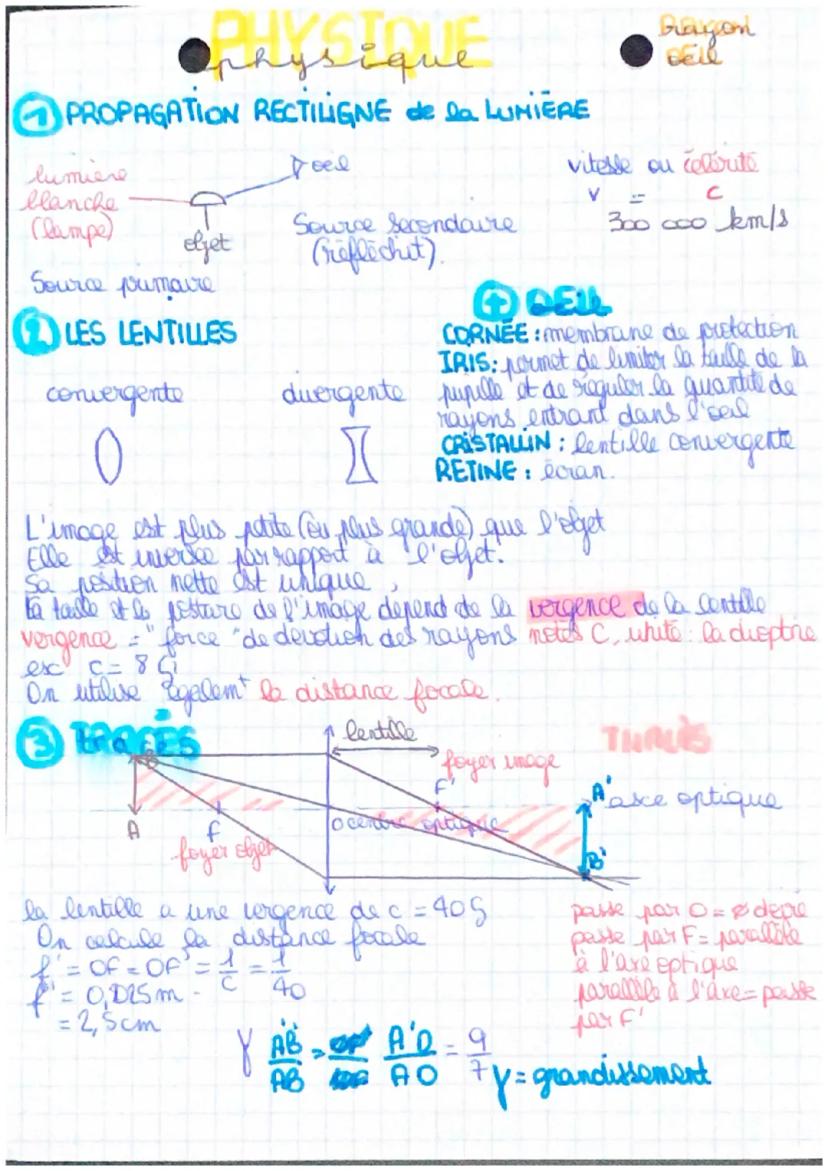 PHYSIQUE
physique
Rayon
oeil
1 PROPAGATION RECTILIGNE de la LUMIÈRE
lumière
blanche
(lampe)
objet
oeil
Source primaire
Source secondaire
(réfléchit).
vitesse ou célérité
v = c
300 000 km/s
2 LES LENTILLES
convergente divergente
+ OEIL
CORNÉE : membrane de protection
IRIS : permet de limiter la taille de la
pupille et de réguler la quantité de
rayons entrant dans l'oeil
CRISTALLIN : lentille convergente
RETINE : écran.
L'image est plus petite (ou plus grande) que l'objet
Elle est inversée par rapport à l'objet.
Sa position nette est unique,
la taille et la posture de l'image depend de la vergence de la lentille
vergence = "force" de deviotion des rayons notés C, unité : la dioptrie
ex C = 8 δ
On utilise égalemt la distance focale.
3 TRACÉS
lentille
THALÈS
foyer image
B
F'
A'
axe optique
A
F
O centre optique
foyer objet
B'
la lentille a une vergence de c = 40 δ
On calcule la distance focale
f' = OF = OF' = 1/C = 1/40
f' = 0,025 m
= 2,5 cm
passe par O = ø dévié
passe par F = parallèle
à l'axe optique
parallèle à l'axe = passe
par F'
γ A'B'/AB = A'O/AO = 9/7
γ = grandissement